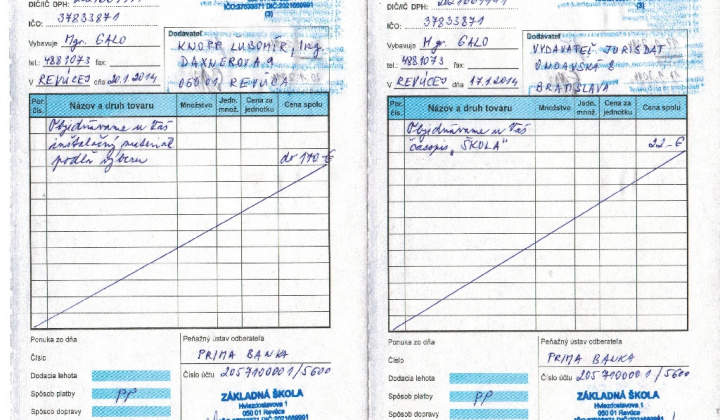 DIČ/IČ DPH:
IČO:37833871 DIČ:2021659991
(3)
IČO: 37833871
Vybavuje Mgr. GALO
tel.: 4881073 fax:
V REVÚCEJ dňa 20.1.2014
Dodávateľ
KNOPP ĽUBOMÍR, Ing.
DAXNEROVA 9
050 01 REVÚCA
Por. čís.
Názov a druh tovaru
Množstvo
Jedn. množ.
Cena za jednotku
Cena spolu
Objednávame u Vás
inštalačný materiál
podľa výberu
do 170.-€
Ponuka zo dňa
Číslo
Dodacia lehota
Spôsob platby PP
Spôsob dopravy
Peňažný ústav odberateľa
PRIMA BANKA
Číslo účtu 2057100001/5600
ZÁKLADNÁ ŠKOLA
Hviezdoslavova 1
050 01 Revúca
DIČ/IČ DPH:
IČO:37833871 DIČ:2021659991
(3)
IČO: 37833871
Vybavuje Mgr. GALO
tel.: 4881073 fax:
V REVÚCEJ dňa 17.1.2014
Dodávateľ
VYDAVATEĽ JURISDAT
BRATISLAVA
Por. čís.
Názov a druh tovaru
Množstvo
Jedn. množ.
Cena za jednotku
Cena spolu
Objednávame u Vás
časopis „ŠKOLA"
22.-€
Ponuka zo dňa
Číslo
Dodacia lehota
Spôsob platby PP
Spôsob dopravy
Peňažný ústav odberateľa
PRIMA BANKA
Číslo účtu 2057100001/5600
ZÁKLADNÁ ŠKOLA
Hviezdoslavova 1
050 01 Revúca